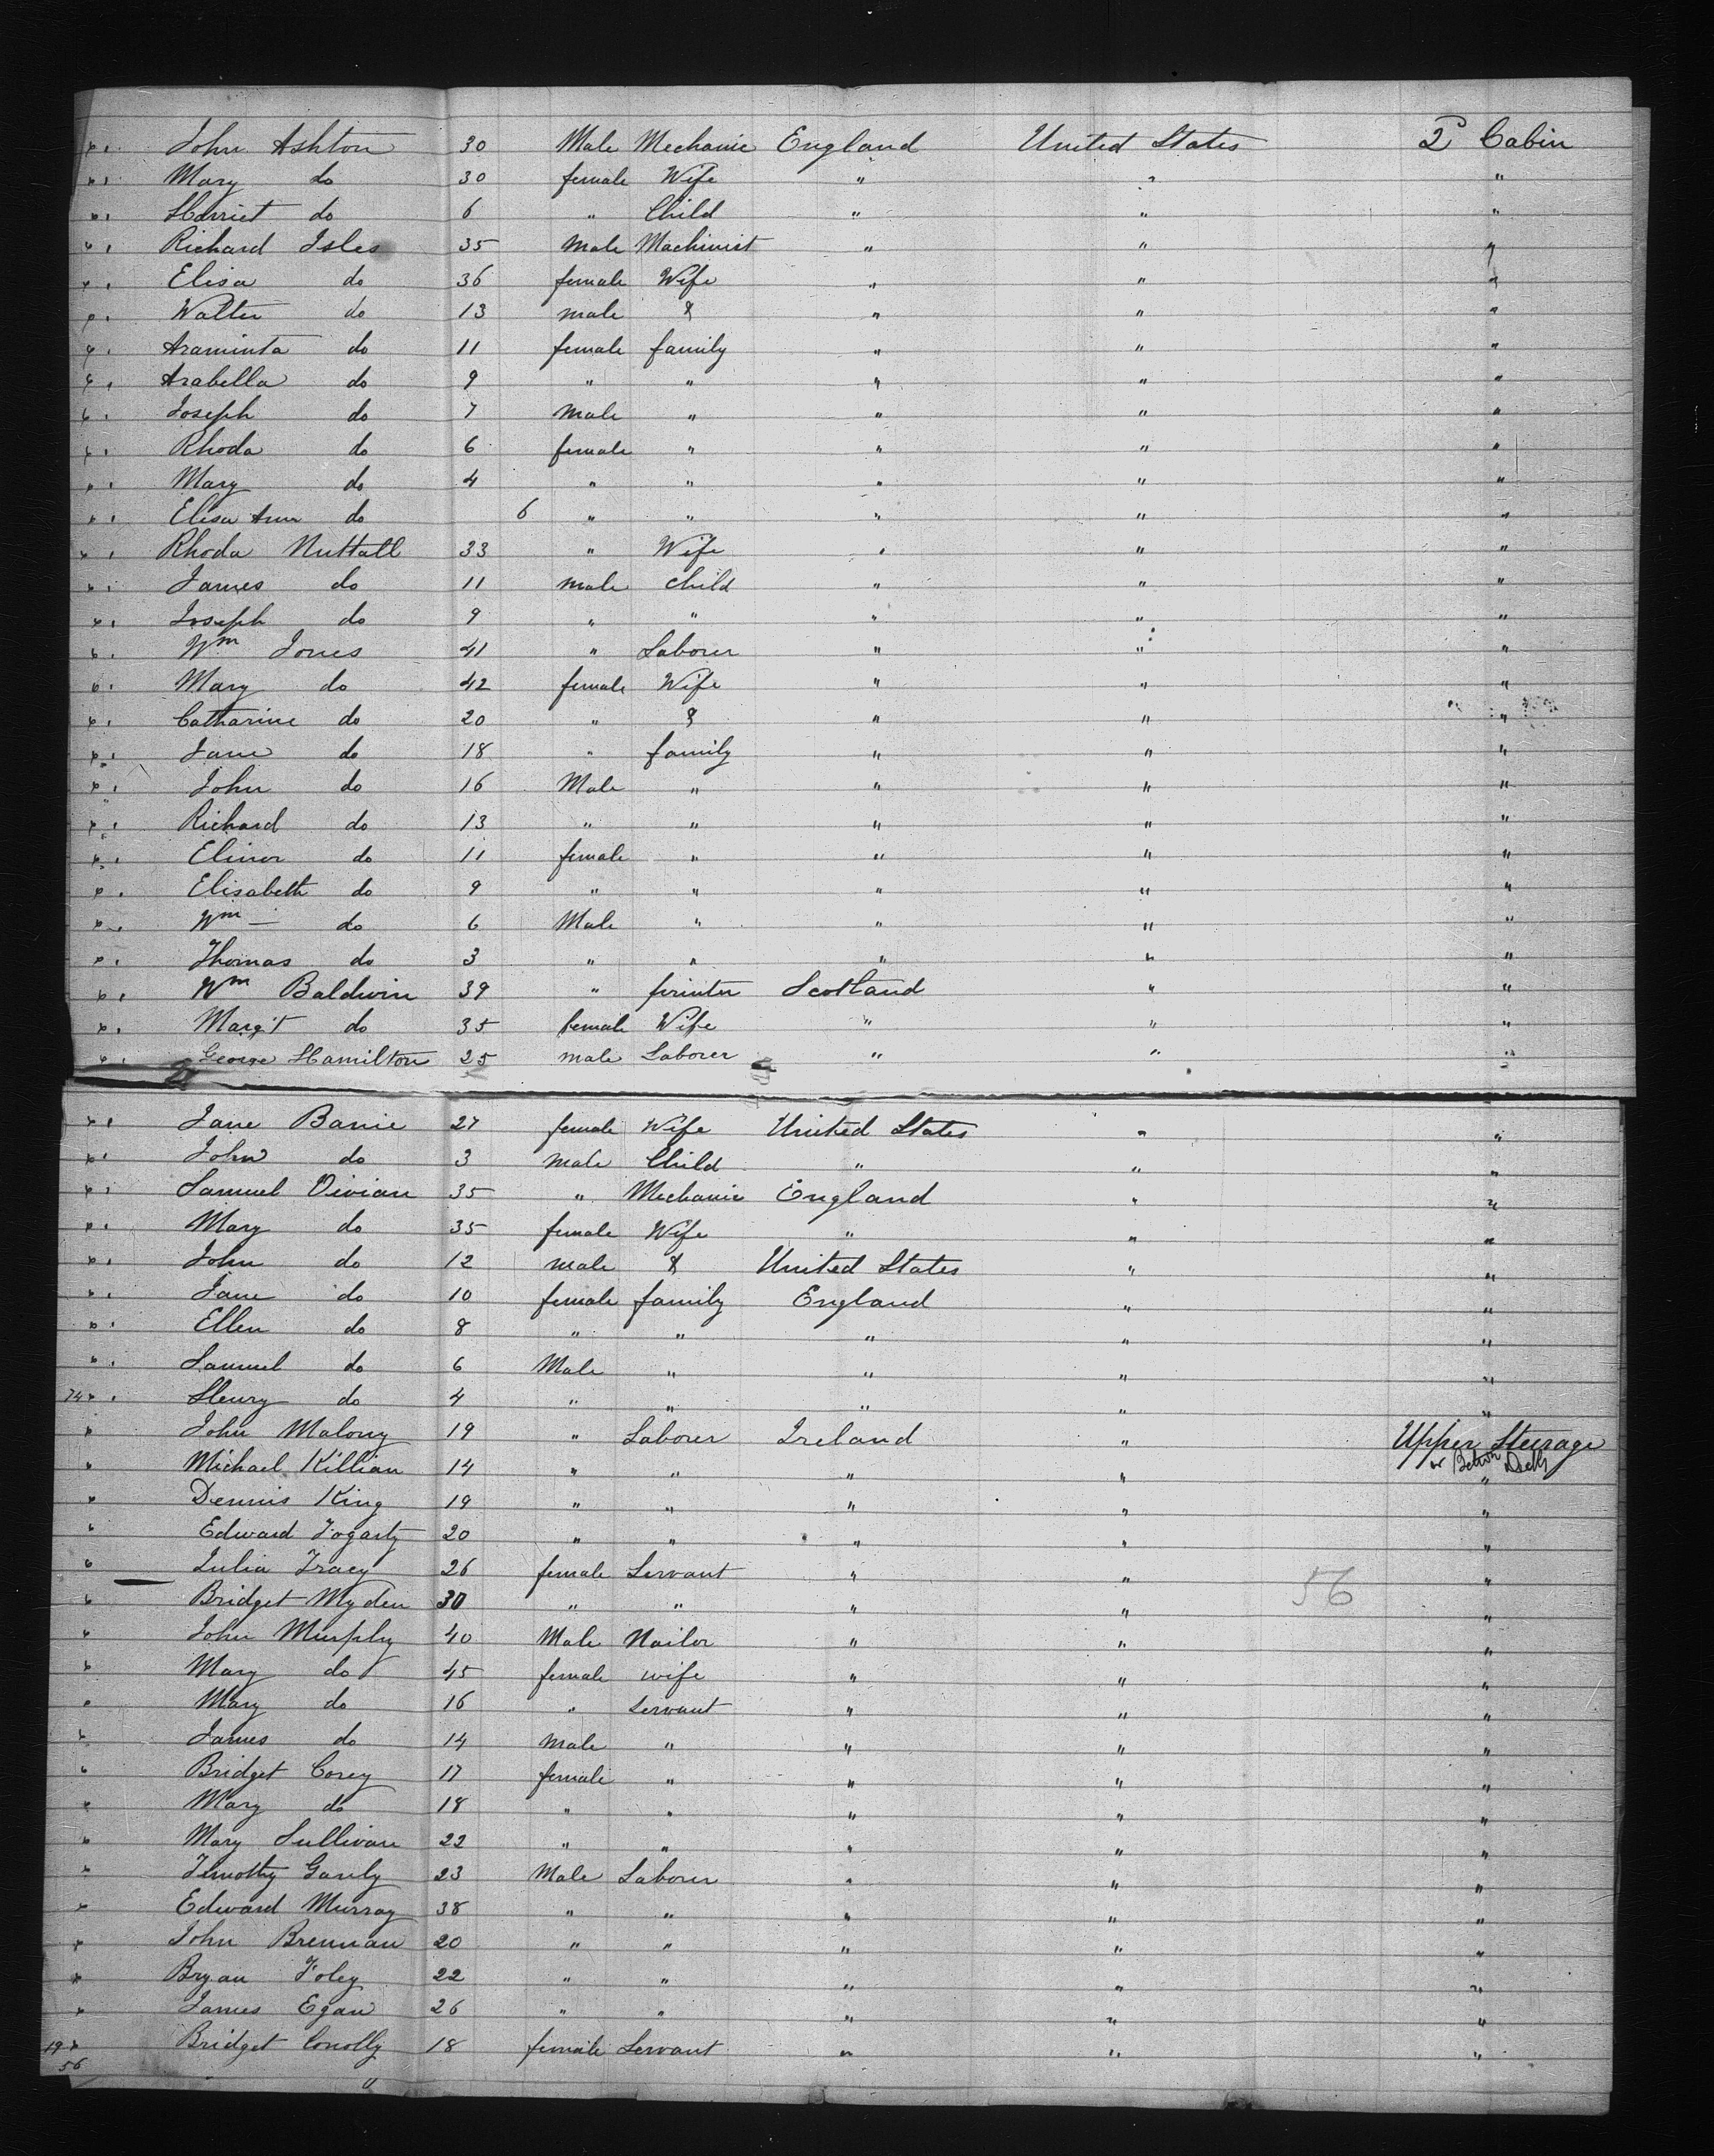 John Ashton 30 Male Mechanic England United States 2d Cabin
Mary do 30 female Wife " " "
Harriet do 6 " Child " " "
Richard Isles 35 Male Machinist " " "
Elisa do 36 female Wife " " "
Walter do 13 male & " " "
Araminta do 11 female family " " "
Arabella do 9 " " " " "
Joseph do 7 Male " " " "
Rhoda do 6 female " " " "
Mary do 4 " " " " "
Elisa Ann do 6 " " " " "
Rhoda Nuttall 33 " Wife " " "
James do 11 male child " " "
Joseph do 9 " " " " "
Wm Jones 41 " Laborer " " "
Mary do 42 female Wife " " "
Catharine do 20 " & " " "
Jane do 18 " family " " "
John do 16 Male " " " "
Richard do 13 " " " " "
Elinor do 11 female " " " "
Elisabeth do 9 " " " " "
Wm — do 6 Male " " " "
Thomas do 3 " " " " "
Wm Baldwin 39 " printer Scotland " "
Marg't do 35 female Wife " " "
George Hamilton 25 male Laborer " " "
Jane Barrie 27 female Wife United States " "
John do 3 male Child " " "
Samuel Vivian 35 " Mechanic England " "
Mary do 35 female Wife " " "
John do 12 male & United States " "
Jane do 10 female family England " "
Ellen do 8 " " " " "
Samuel do 6 Male " " " "
74 Henry do 4 " " " " "
John Malony 19 " Laborer Ireland " Upper Steerage
or Betwn Decks
Michael Killian 14 " " " " "
Dennis King 19 " " " " "
Edward Fogarty 20 " " " " "
Julia Tracy 26 female Servant " " "
56
Bridget Myden 30 " " " " "
John Murphy 40 Male Nailor " " "
Mary do 45 female wife " " "
Mary do 16 " Servant " " "
James do 14 Male " " " "
Bridget Corey 17 female " " " "
Mary do 18 " " " " "
Mary Sullivan 22 " " " " "
Timothy Ganly 23 Male Laborer " " "
Edward Murray 38 " " " " "
John Brennan 20 " " " " "
Bryan Foley 22 " " " " "
James Egan 26 " " " " "
19 Bridget Conolly 18 female Servant " " "
56